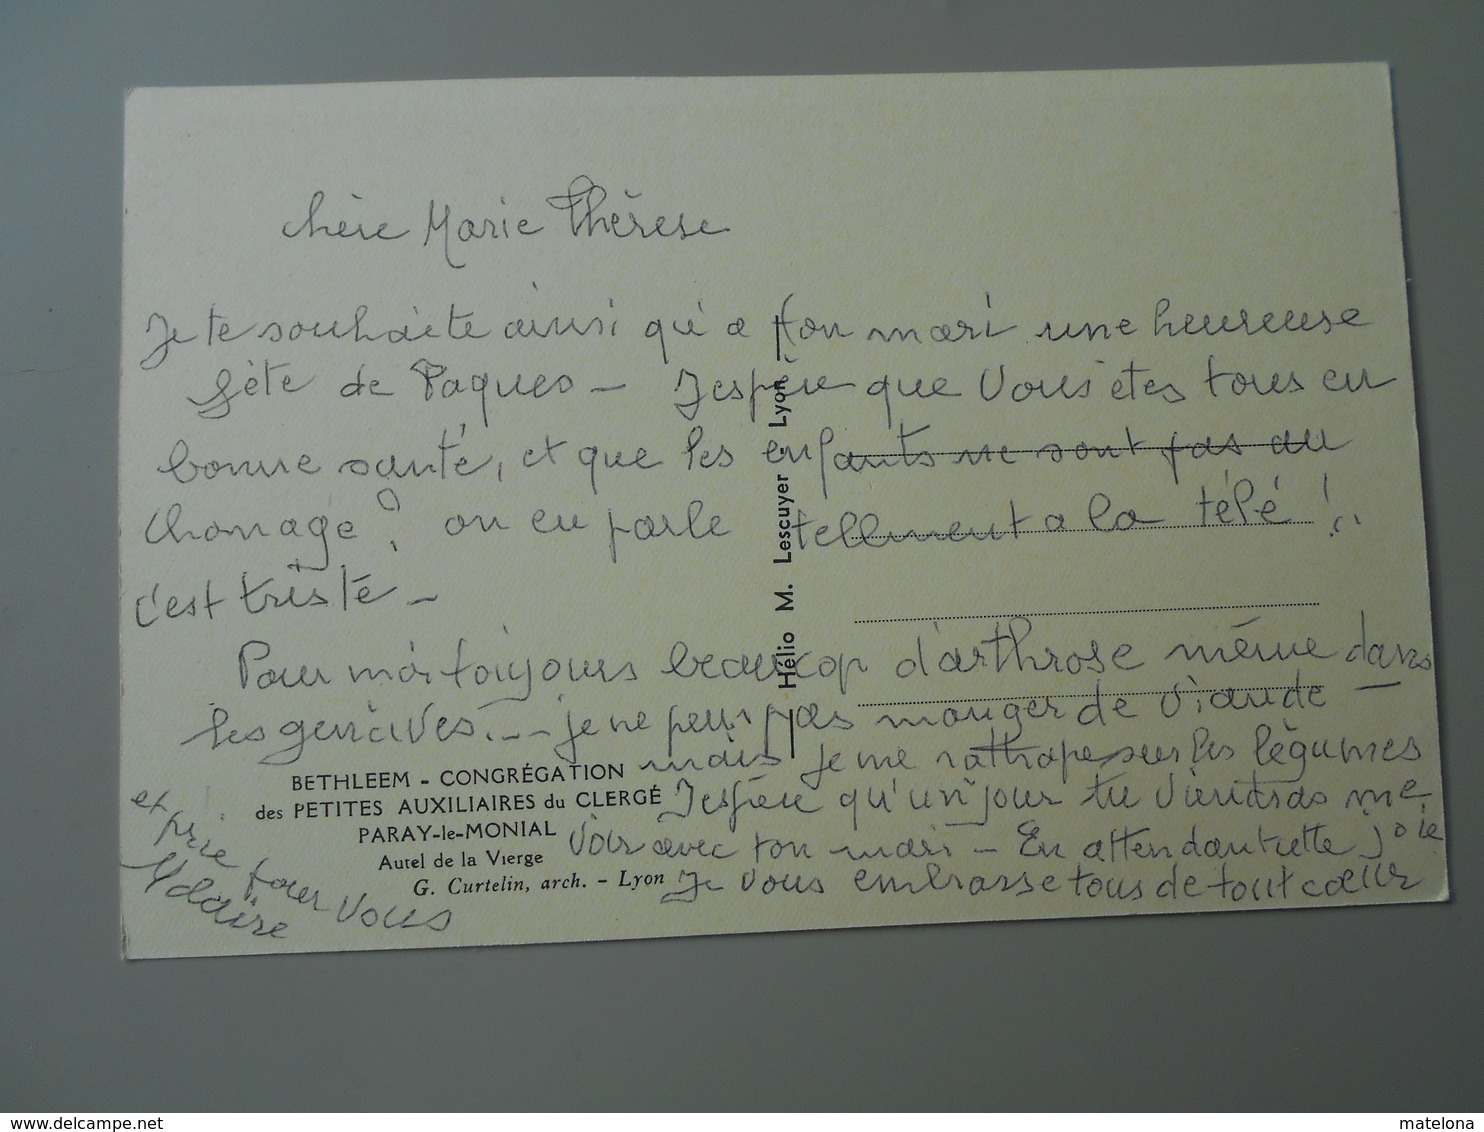 chère Marie Thérese
Je te souhaite ainsi qu'a ton mari une heureuse
fète de Paques - J'espère que Vous êtes tous en
bonne santé, et que les enfants ne sont pas au
chomage? on en parle tellment a la télé!..
c'est triste -
Pour moi toujours beaucop d'arthrose même dans
les gencives... je ne peux pas manger de viande -
mais je me rathape sur les légumes
J'espère qu'un jour tu viendras me
voir avec ton mari - En attendant cette joie
Je vous embrasse tous de tout cœur
et prie pour vous
BETHLEEM - CONGRÉGATION
des PETITES AUXILIAIRES du CLERGÉ
PARAY-le-MONIAL
Autel de la Vierge
G. Curtelin, arch. - Lyon
Hélio M. Lescuyer - Lyon
www.delcampe.net
matelona